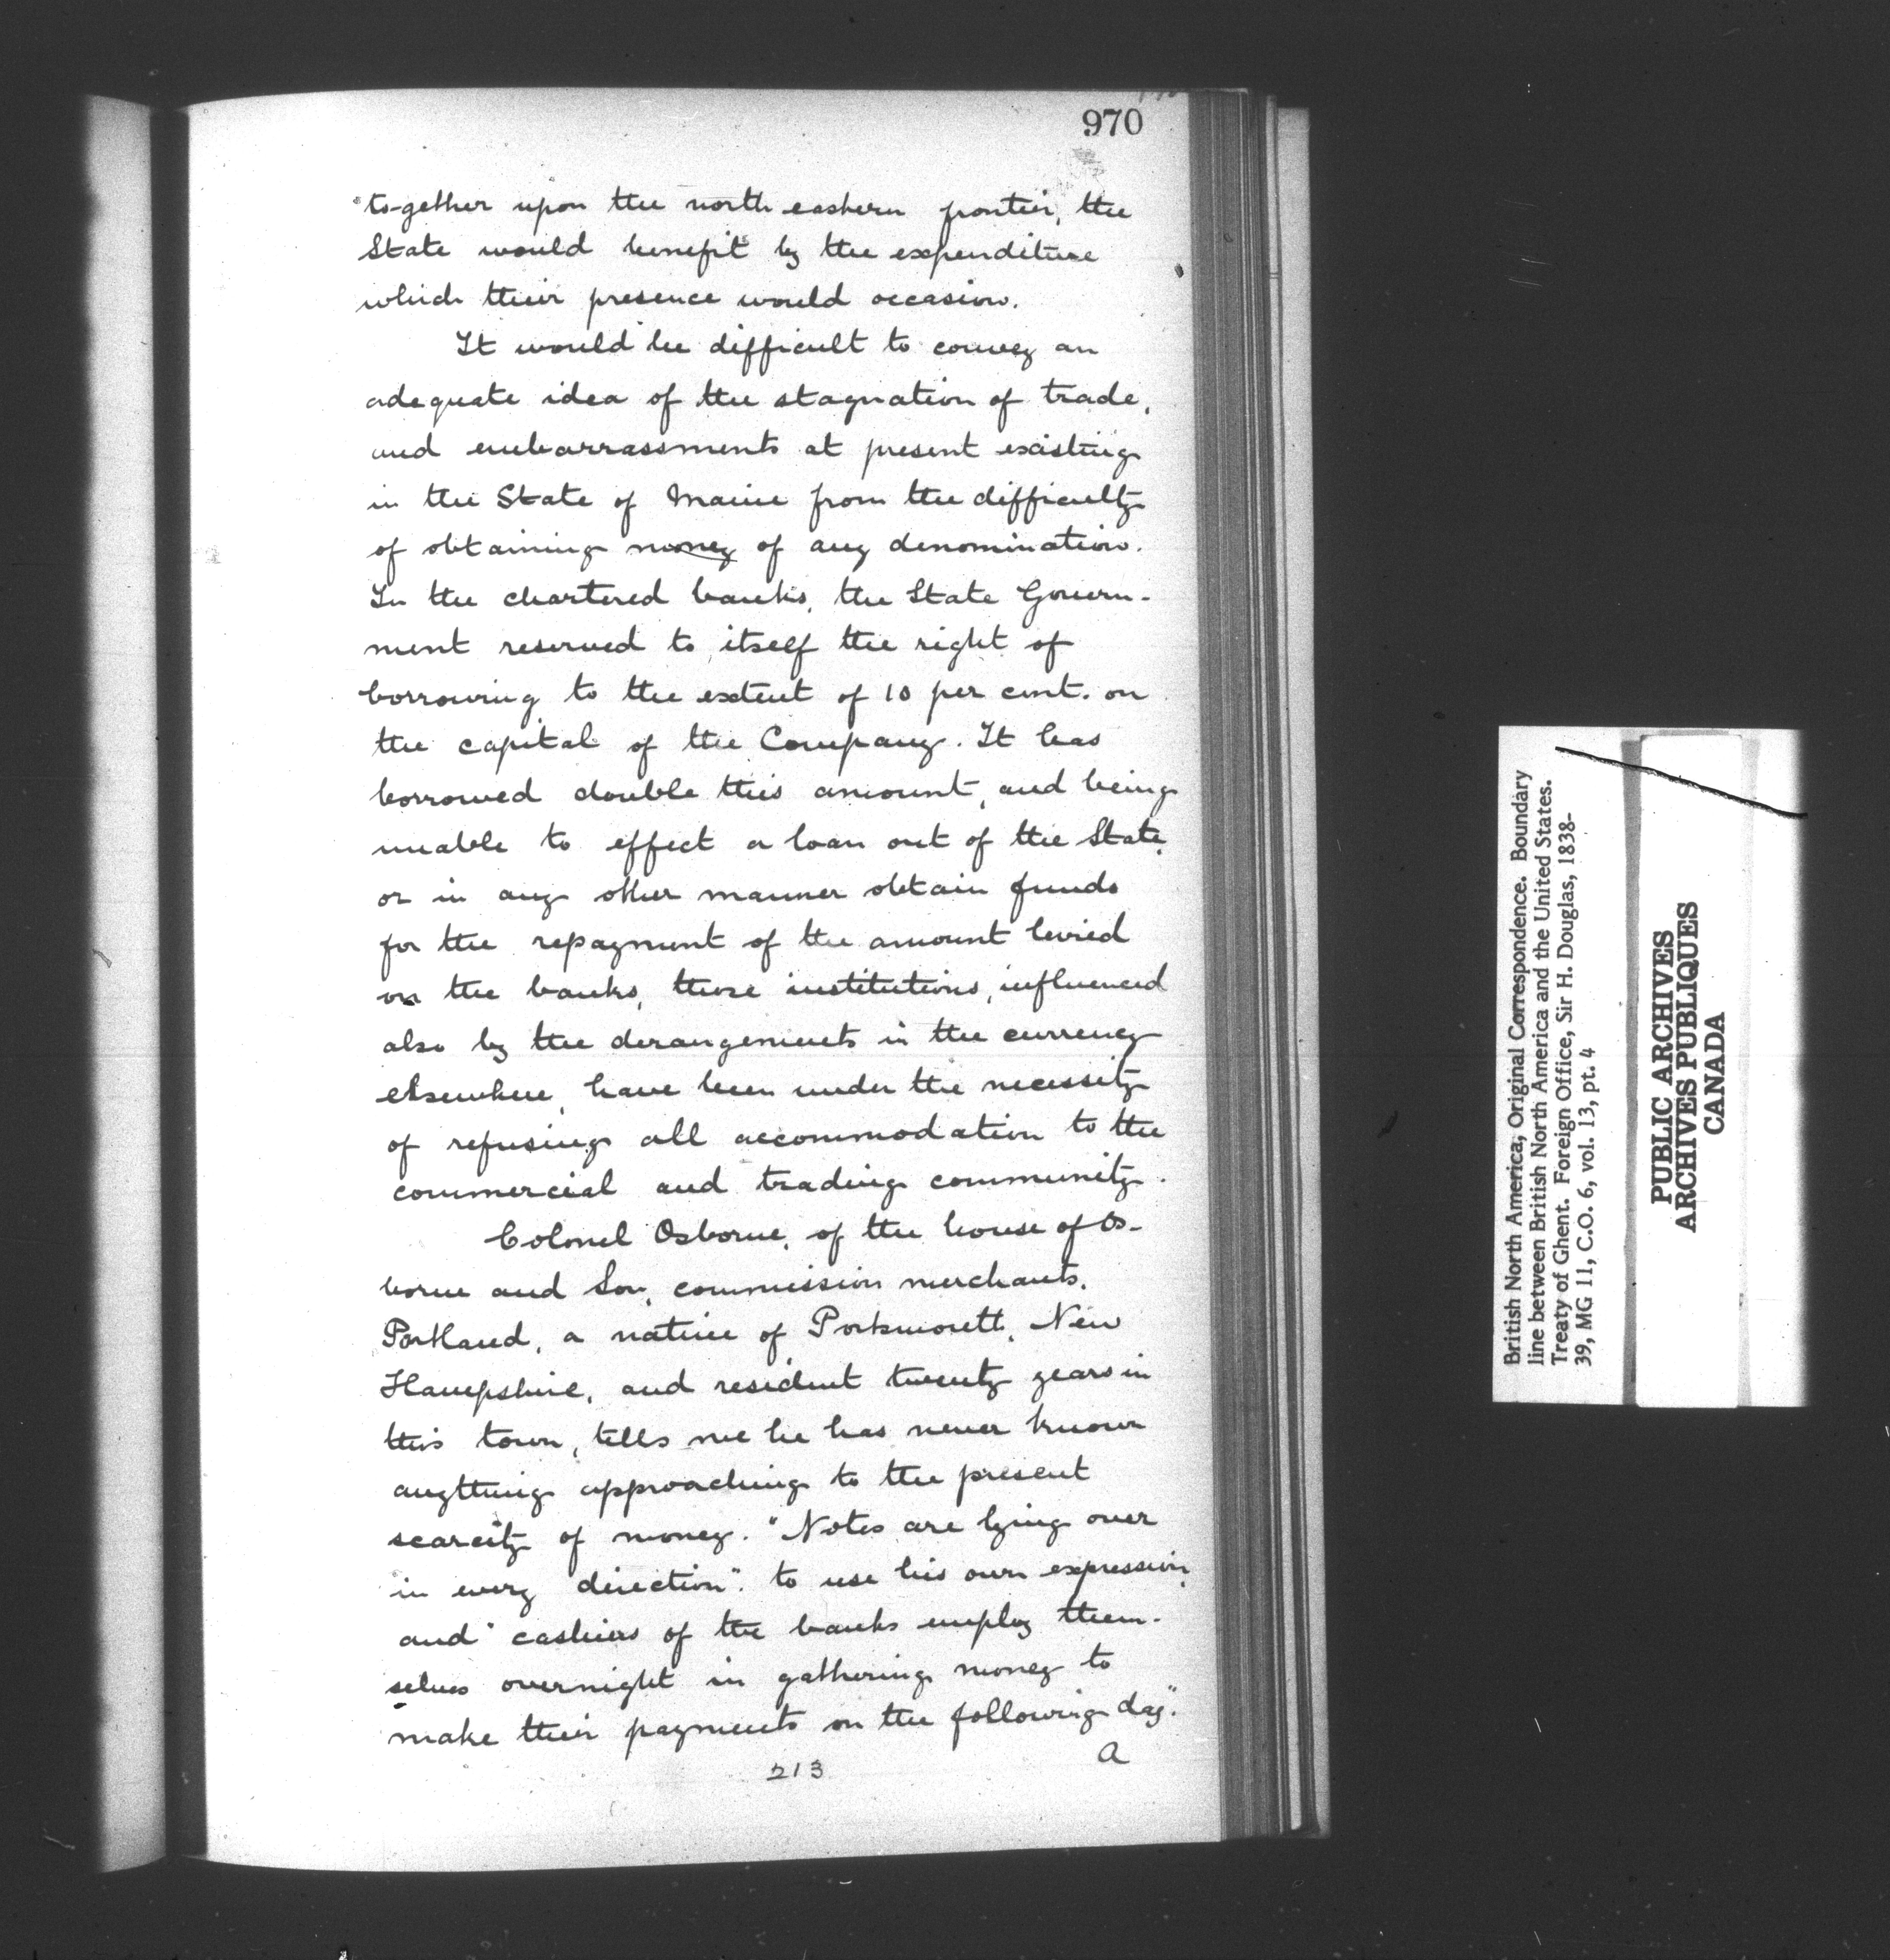 970
to-gether upon the north eastern frontier, the
State would benefit by the expenditure
which their presence would occasion.
It would be difficult to convey an
adequate idea of the stagnation of trade,
and embarrassments at present existing
in the State of Maine from the difficulty
of obtaining money of any denomination.
In the chartered banks, the State Govern-
ment reserved to itself the right of
borrowing to the extent of 10 per cent. on
the capital of the Company. It has
borrowed double this amount, and being
unable to effect a loan out of the State,
or in any other manner obtain funds
for the repayment of the amount levied
on the banks, those institutions, influenced
also by the derangements in the currency
elsewhere, have been under the necessity
of refusing all accommodation to the
commercial and trading community.
Colonel Osborne, of the house of Os-
borne and Son, commission merchants,
Portland, a native of Portsmouth, New
Hampshire, and resident twenty years in
this town, tells me he has never known
anything approaching to the present
scarcity of money. "Notes are lying over
in every direction". to use his own expression,
and "cashiers of the banks employ them-
selves overnight in gathering money to
make their payments on the following day".
213
a
British North America, Original Correspondence. Boundary
line between British North America and the United States.
Treaty of Ghent. Foreign Office, Sir H. Douglas, 1838-
39, MG 11, C.O. 6, vol. 13, pt. 4
PUBLIC ARCHIVES
ARCHIVES PUBLIQUES
CANADA